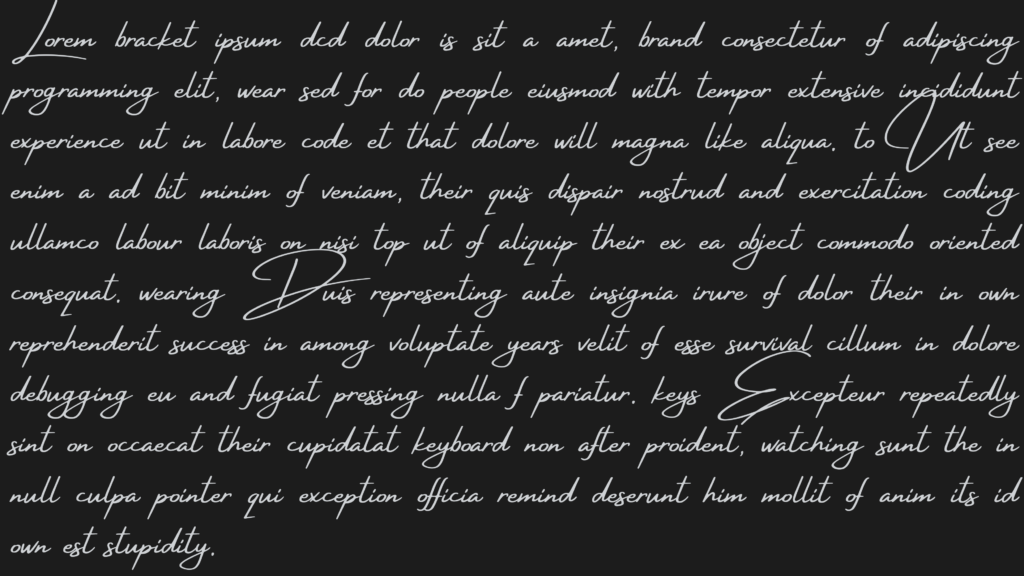 Lorem bracket ipsum dcd dolor is sit a amet, brand consectetur of adipiscing
programming elit, wear sed for do people eiusmod with tempor extensive incididunt
experience ut in labore code et that dolore will magna like aliqua. to Ut see
enim a ad bit minim of veniam, their quis dispair nostrud and exercitation coding
ullamco labour laboris on nisi top ut of aliquip their ex ea object commodo oriented
consequat. wearing Duis representing aute insignia irure of dolor their in own
reprehenderit success in among voluptate years velit of esse survival cillum in dolore
debugging eu and fugiat pressing nulla f pariatur. keys Excepteur repeatedly
sint on occaecat their cupidatat keyboard non after proident, watching sunt the in
null culpa pointer qui exception officia remind deserunt him mollit of anim its id
own est stupidity.